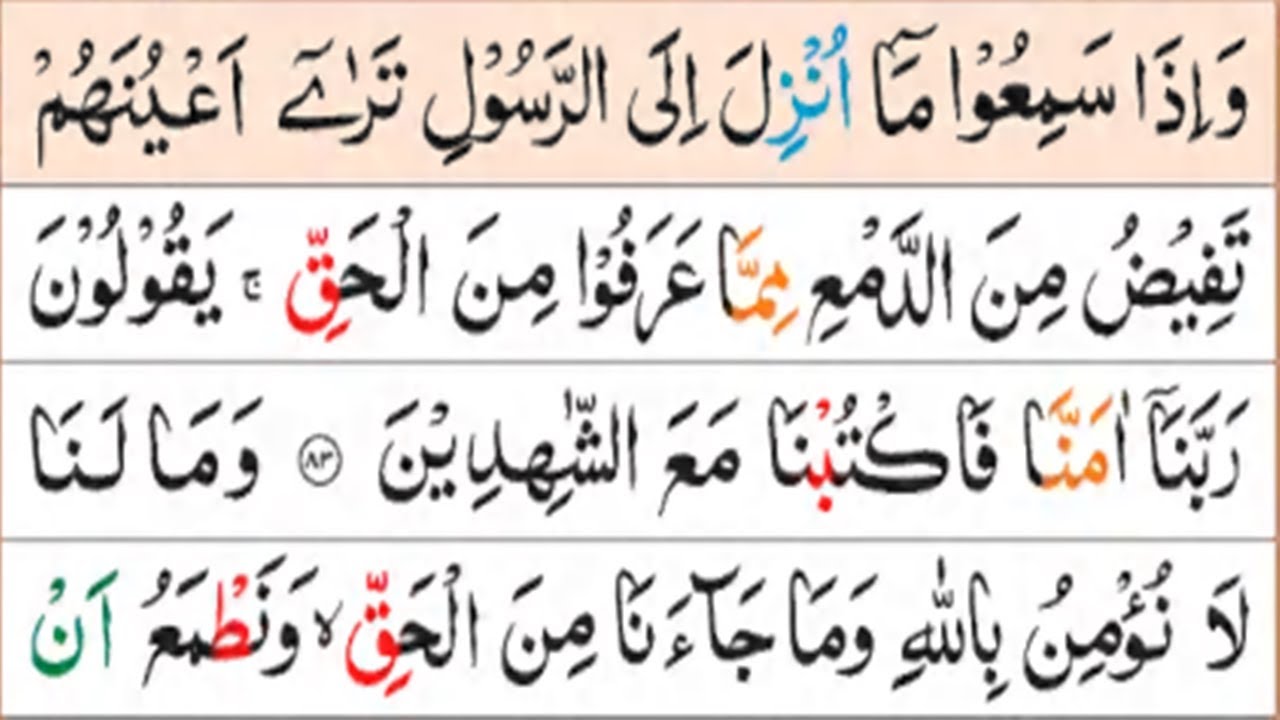 وَاِذَا سَمِعُوْا مَاۤ اُنْزِلَ اِلَى الرَّسُوْلِ تَرٰۤى اَعْيُنَهُمْ
تَفِيْضُ مِنَ الدَّمْعِ مِمَّا عَرَفُوْا مِنَ الْحَقِّ ۚ يَقُوْلُوْنَ
رَبَّنَاۤ اٰمَنَّا فَاكْتُبْنَا مَعَ الشّٰهِدِيْنَ ۝۸۳ وَمَا لَـنَا
لَا نُؤْمِنُ بِاللّٰهِ وَمَا جَآءَنَا مِنَ الْحَقِّ ۙ وَنَطْمَعُ اَنْ